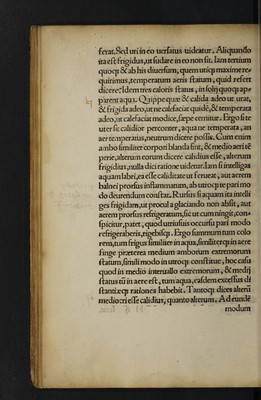 ferat. Sed uti in eo versatus uideatur. Aliquando
ita est frigidus, ut sudare in eo non sit. Iam tertium
quoq; & ab his diuersum, quem utiq; maxime re
quirimus, temperatum aeris statum, quid refert
dicere? Idem tres caloris status, in solijs quoq; ap
parent aqua. Quippe quæ & calida adeo ut urat,
& frigida adeo, ut ne calefaciat quidē, & temperata
adeo, ut calefaciat modice, sæpe cernitur. Ergo si te
uter sit calidior perconter, aqua ne temperata, an
aer temperatus, neutrum dicere possis. Cum enim
ambo similiter corpori blanda sint, & medio aeri tē
perie, alterum eorum dicere calidius esse, alterum
frigidius, nulla dici ratione uidetur. Iam si intelligas
aquam labri, ea esse caliditate ut ferueat, aut aerem
balnei prorsus inflammatum, ab utroq; te pari mo
do deurendum constat. Rursus si aquam ita intelli
ges frigidam, ut procul a glaciando non absit, aut
aerem prorsus refrigeratum, sicut cum ningit, con
spicitur, patet, quod utriusuis occursu pari modo
refrigeraberis, rigebisq;. Ergo summum tum calo
rem, tum frigus similiter in aqua, similiterq; in aere
finge præterea medium amborum extremorum
statum, simili modo in utroq; constitue, hoc casu
quod in medio interuallo extremorum, & medij
status tū in aere est, tum aqua, easdem extessus di
stantiæq; rationes habebit. Tantoq; dices alterū
mediocri esse calidius, quanto alterum. Ad eundē
modum